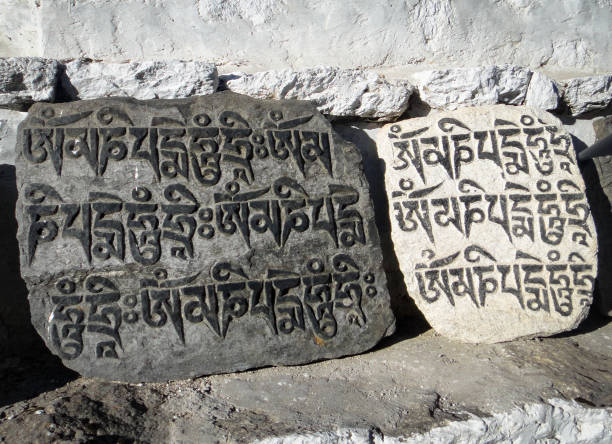 ཨོཾམཎིཔདྨེཧཱུྃཧྲཱིཿཨོཾམ
ཎིཔདྨེཧཱུྃཧྲཱིཿཨོཾམཎིཔདྨེ
ཧཱུྃཧྲཱིཿཨོཾམཎིཔདྨེཧཱུྃཧྲཱིཿ
ཨོཾམཎིཔདྨེཧཱུྃཧྲཱིཿ
ཨོཾམཎིཔདྨེཧཱུྃཧྲཱིཿ
ཨོཾམཎིཔདྨེཧཱུྃཧྲཱིཿ